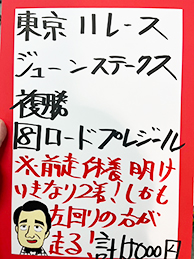 東京11レース
ジューンステークス
複勝
⑧ロードプレジール
※前走休養明け
いきなり2着!しかも
左回りの方が
走る!計1,000円